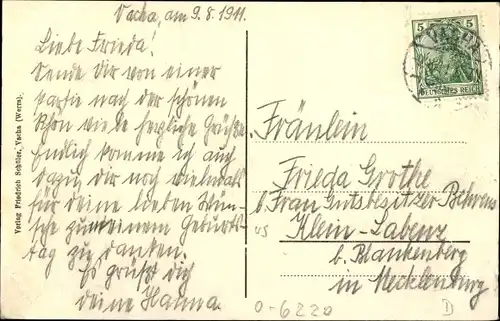 Vacha, am 9.8.1911.
Liebe Frieda!
Sende Dir von einer
Partie nach der schönen
Rhön viele herzliche Grüße.
Endlich komme ich auch
dazu, dir noch vielmals
für deine lieben Wün-
sche zu meinem Geburts-
tag zu danken.
Es grüßt dich
deine Hanna.
Verlag Friedrich Schüler, Vacha (Werra).
5 5
DEUTSCHES REICH
Fräulein
Frieda Grothe
b. Frau Gutsbesitzer Behrens
Klein-Labenz
b. Blankenberg
in Mecklenburg
0-6220
D